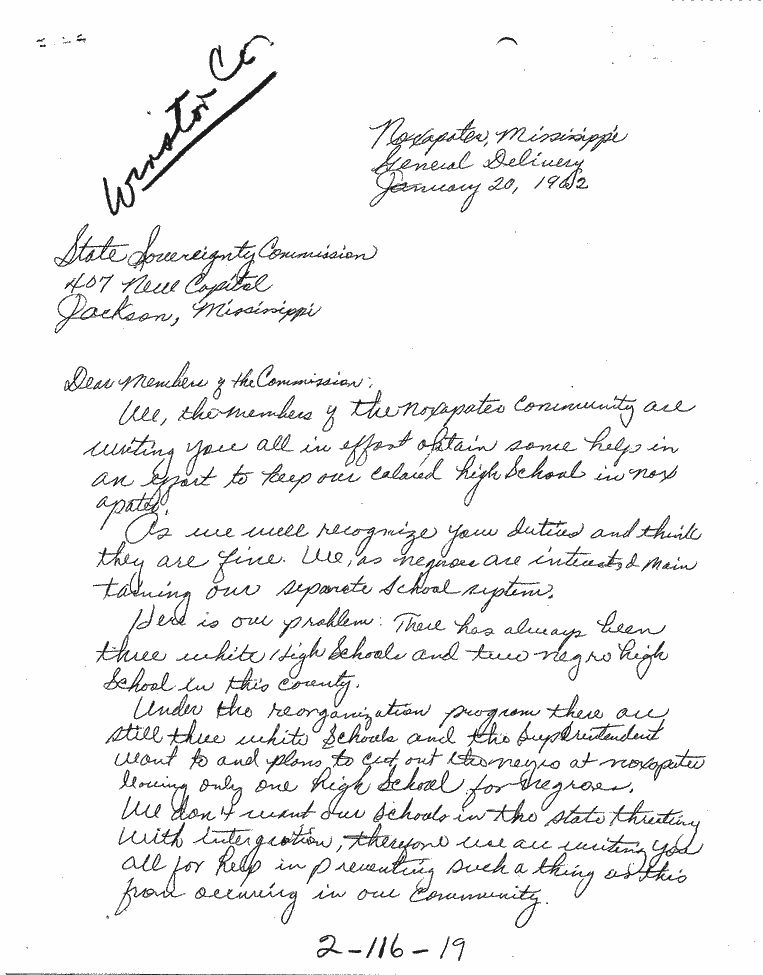 Winston Co.
Noxapater, Mississippi
General Delivery
January 20, 1962
State Sovereignty Commission
407 New Capital
Jackson, Mississippi
Dear Members of the Commission:
We, the members of the Noxapater Community are
writing you all in effort obtain some help in
an effort to keep our colored high School in Nox
apater.
As we well recognize your duties and think
they are fine. We, as negroes are interested main
taining our separate School system.
Here is our problem: There has always been
three white High Schools and two negro high
School in this county.
Under the reorganization program there are
still three white Schools and the Supertentendent
want to and plans to cut out the negro at noxapater
leaving only one high School for negroes.
We don't want our Schools in the state threating
with intergration, therefore we are writing you
all for help in preventing such a thing as this
from occuring in our Community.
2-116-19